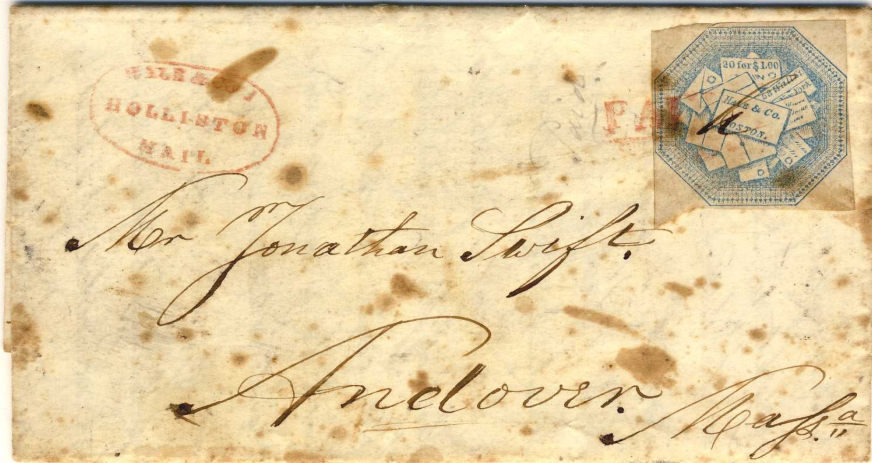 HOLLISTON
MAIL
PAI
20 for $1.00
HALE & Co.
BOSTON.
Mr Jonathan Swift.
Andover.
Mass.a